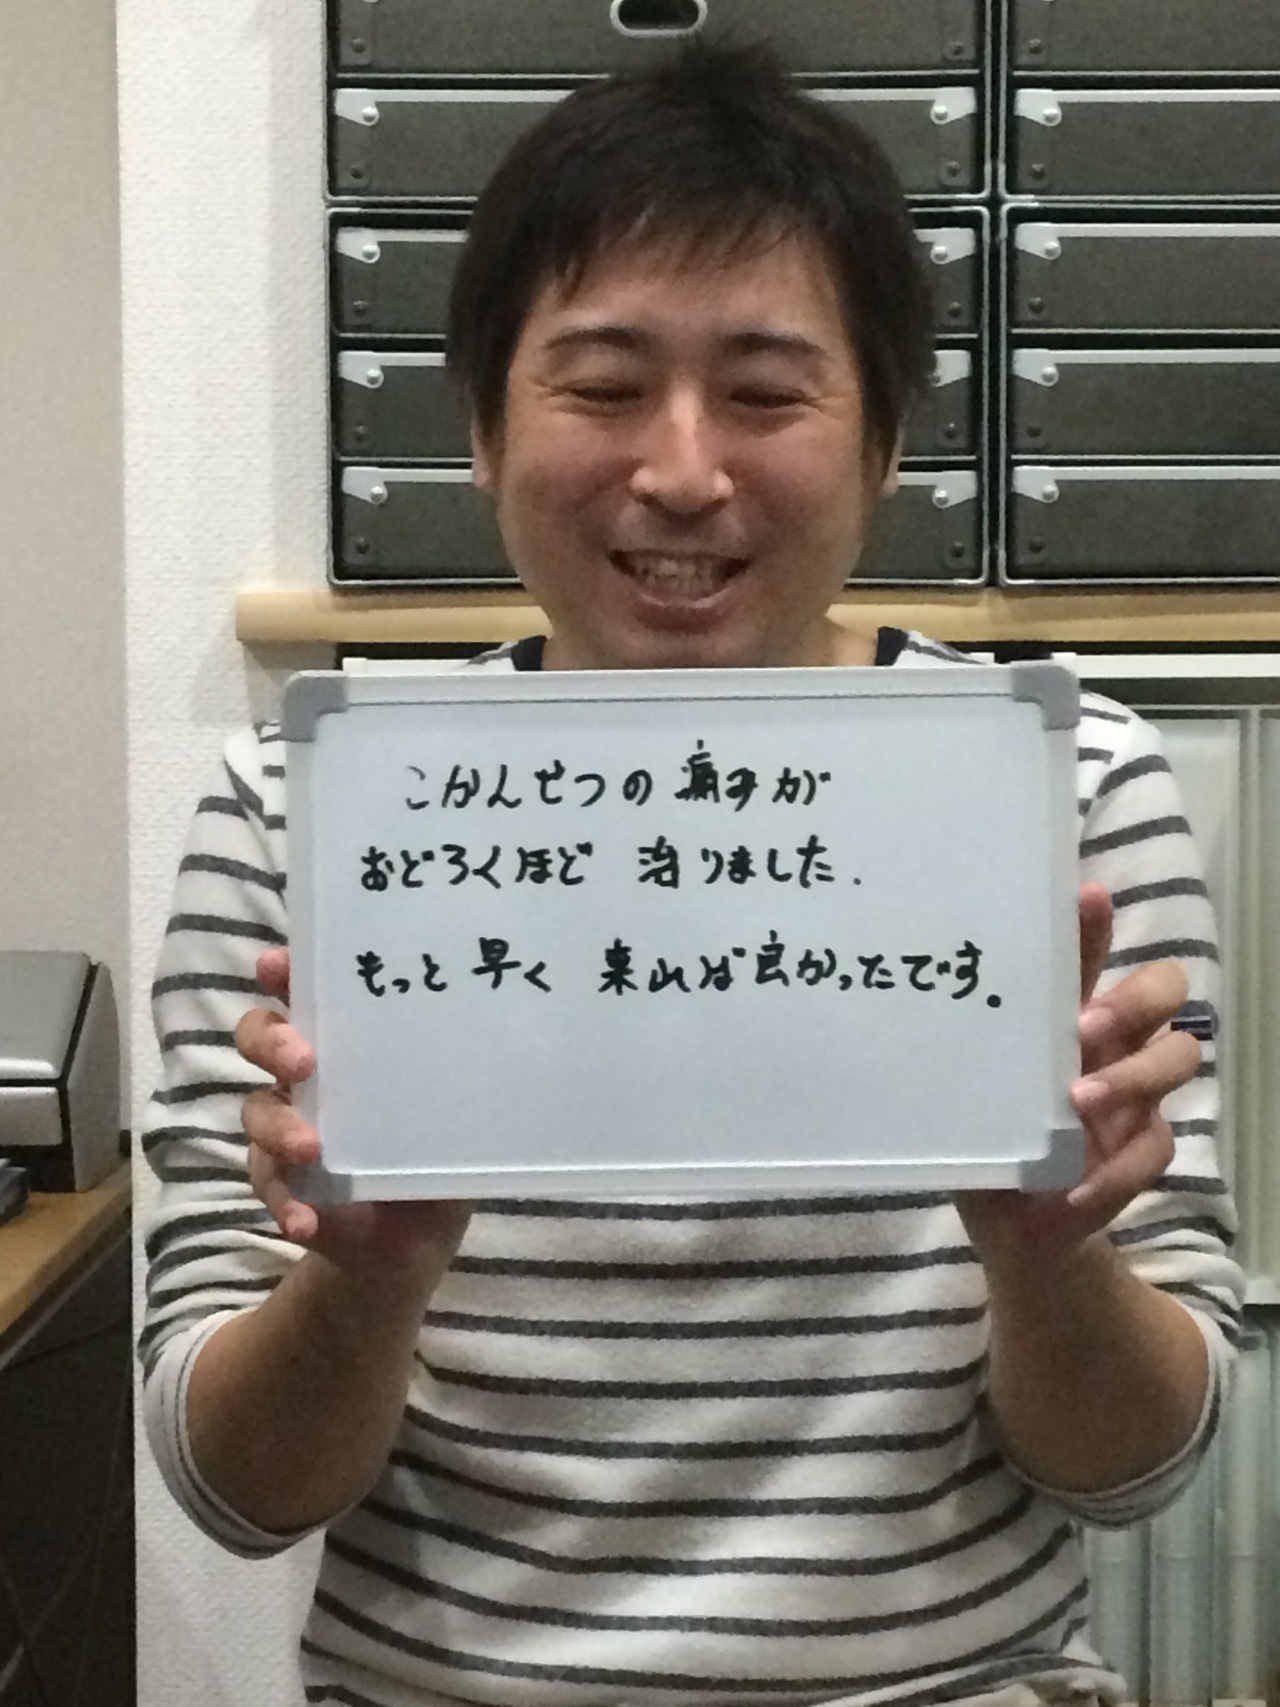 こかんせつの痛みが
おどろくほど 治りました.
もっと早く 来れば良かったです。